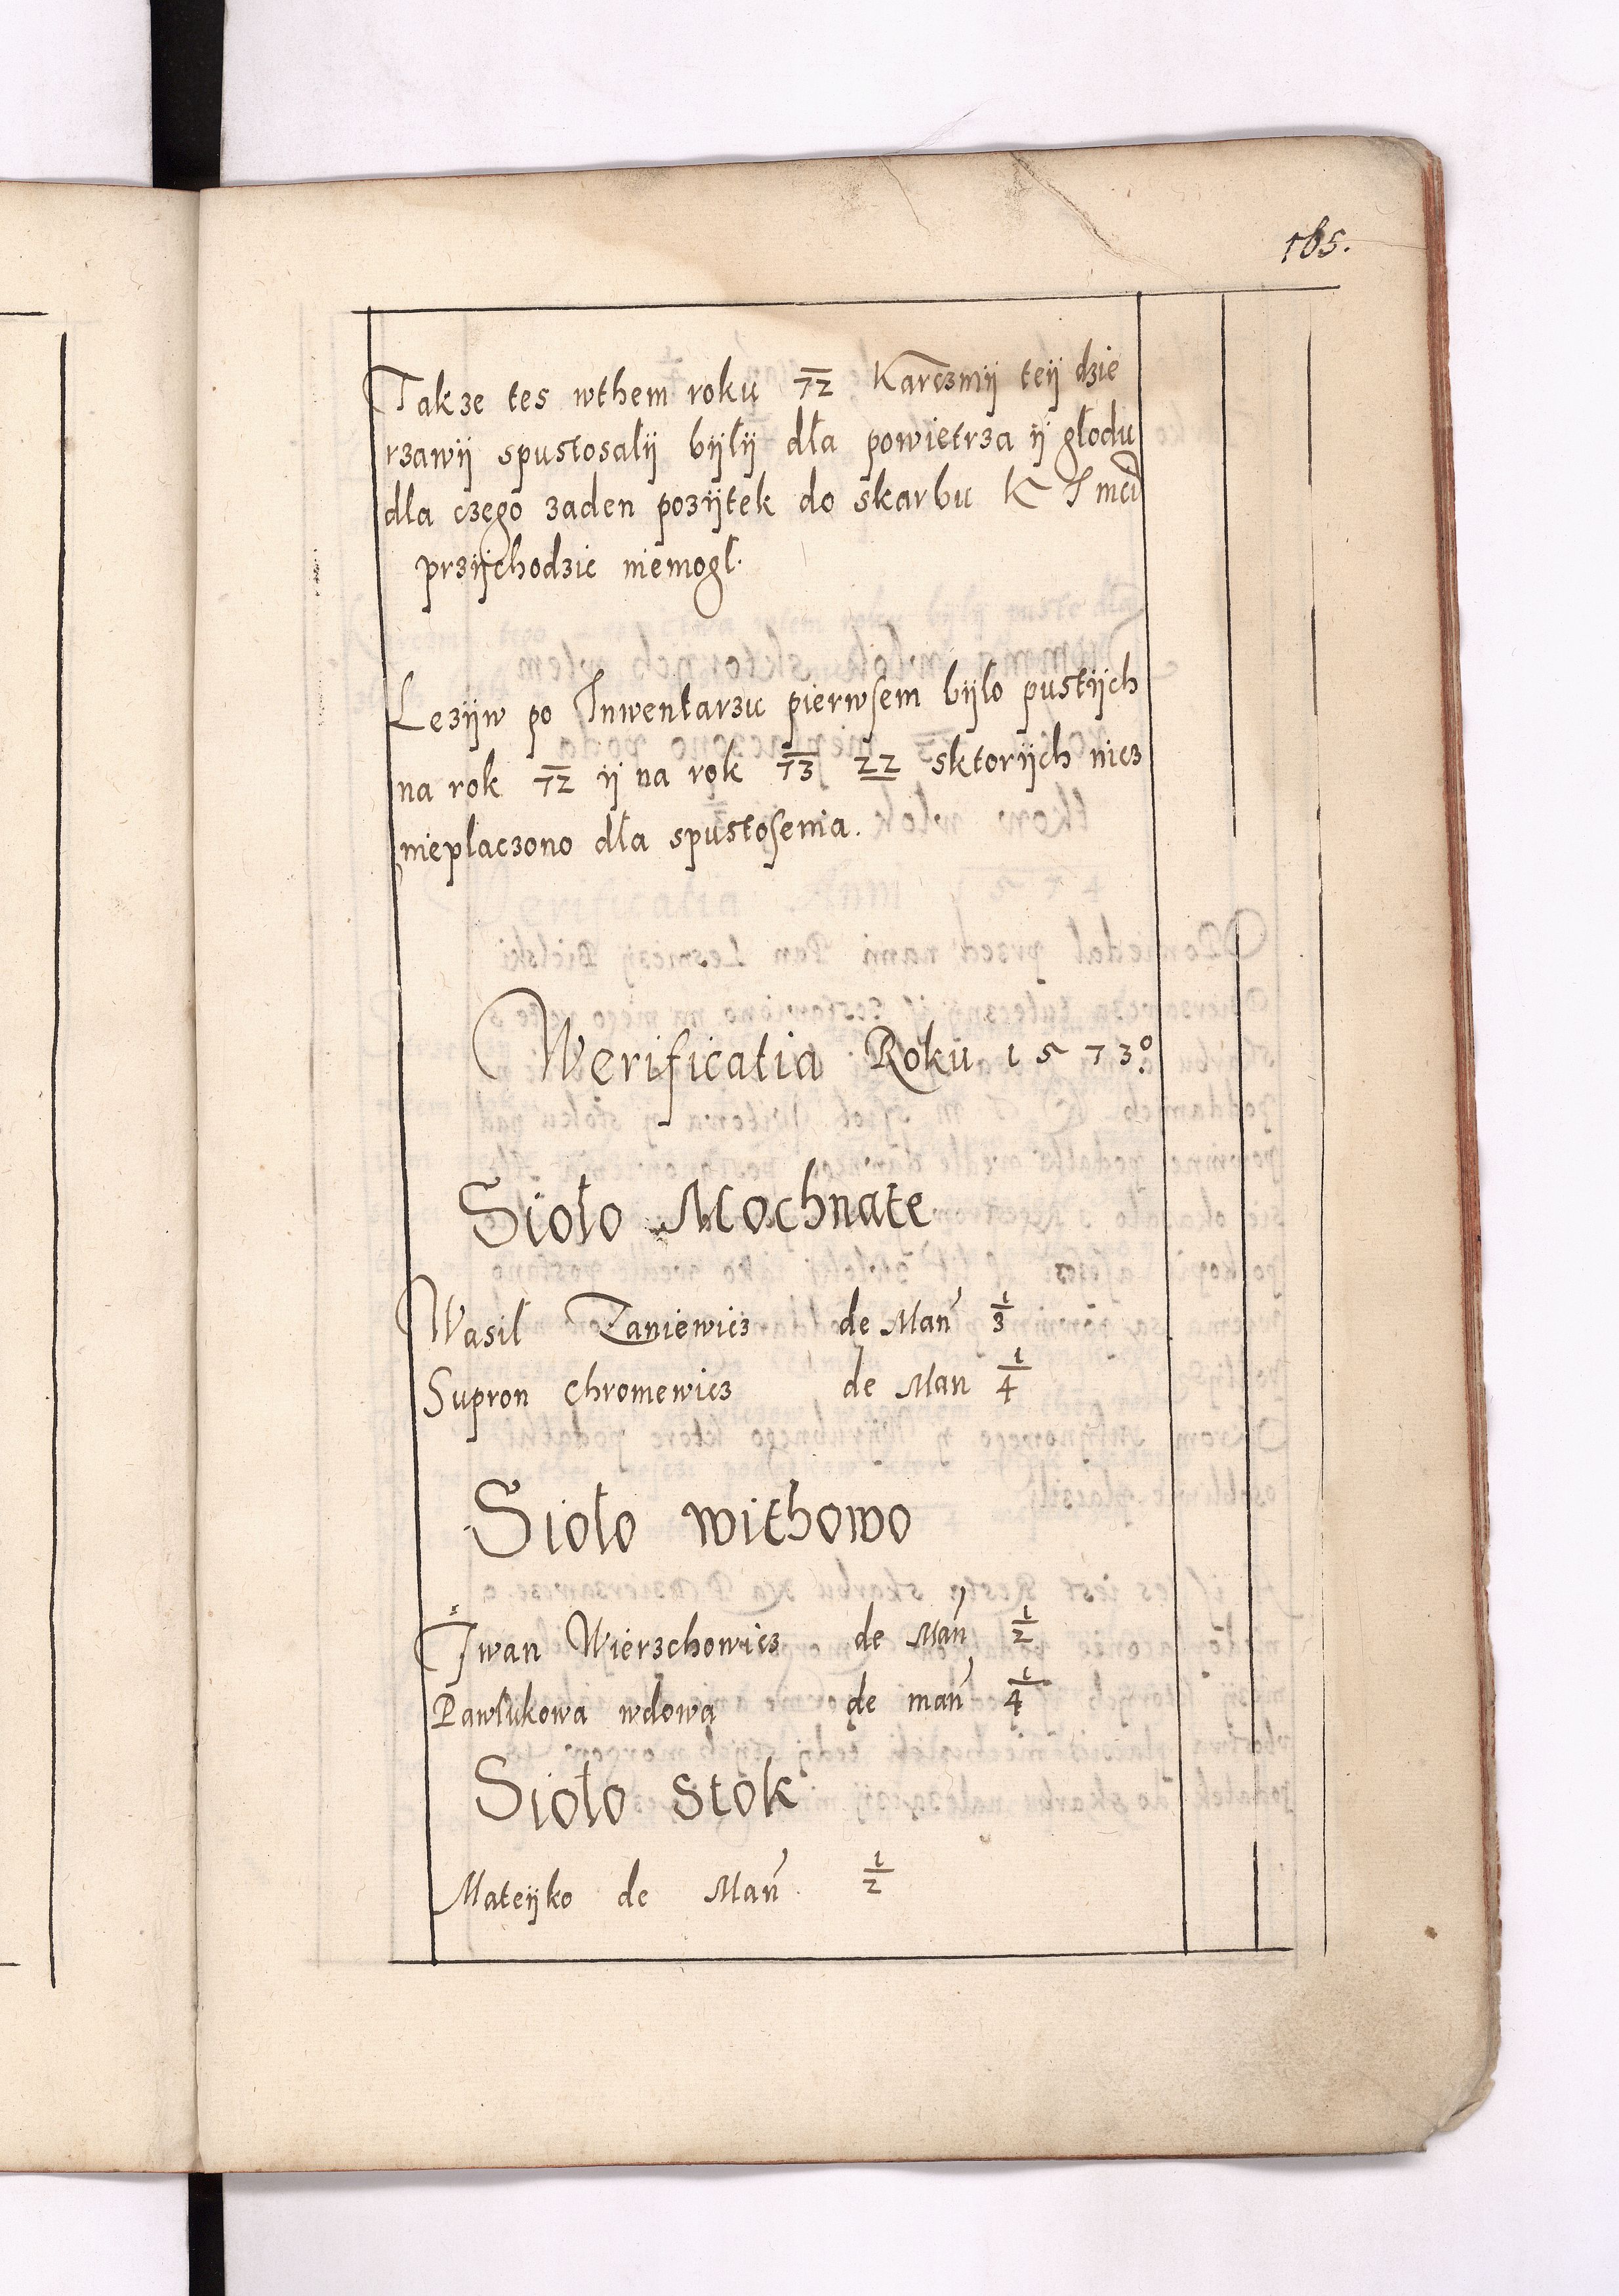 165.
Takze tes wthem roku 72 Karczmÿ teÿ dzie
rzawÿ spustosalÿ bÿlÿ dla powietrza ÿ głodu
dla czego zaden pozÿtek do skarbu K J mci
przÿchodzic niemogl.
Lezÿw po Inwentarzu pierwsem bÿlo pustÿch
na rok 72 ÿ na rok 73 22 sktorÿch nicz
nieplaczono dla spustosenia.
Werificatia Roku 1573º
Sioło Mochnate
Wasil Zaniewicz de Man 1/3
Supron Chromewicz de Man 1/4
Sioło withowo
Iwan Wierzchowicz de Man 1/2
Pawlukowa wdowa de man 1/4
Sioło Stok
Mateÿko de Man 1/2